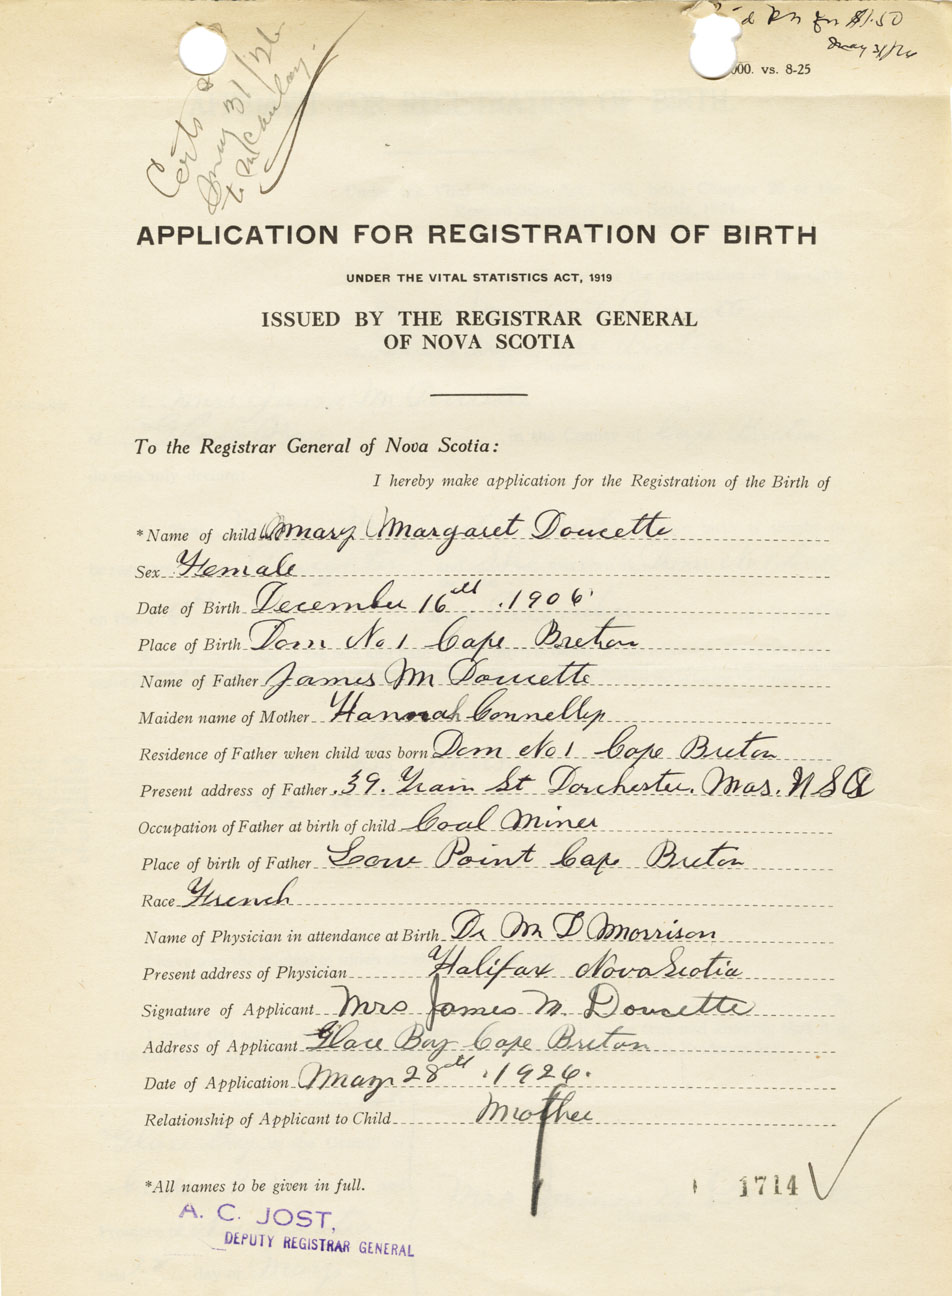 for $1.50
May 31/26
000. vs. 8-25
Certs
May 31/26
to McCaulay
APPLICATION FOR REGISTRATION OF BIRTH
UNDER THE VITAL STATISTICS ACT, 1919
ISSUED BY THE REGISTRAR GENERAL
OF NOVA SCOTIA
To the Registrar General of Nova Scotia:
I hereby make application for the Registration of the Birth of
*Name of child Mary Margaret Doucette
Sex Female
Date of Birth December 16th . 1906
Place of Birth Dom No 1 Cape Breton
Name of Father James M Doucette
Maiden name of Mother Hannah Connelly
Residence of Father when child was born Dom No 1 Cape Breton
Present address of Father . 39. Train St Dorchester. Mas. U S A
Occupation of Father at birth of child Coal Miner
Place of birth of Father Low Point Cape Breton
Race French
Name of Physician in attendance at Birth Dr M D Morrison
Present address of Physician Halifax Nova Scotia
Signature of Applicant Mrs James M. Doucette
Address of Applicant Glace Bay Cape Breton
Date of Application May 28th . 1926.
Relationship of Applicant to Child Mother
*All names to be given in full.
1714
A. C. JOST,
DEPUTY REGISTRAR GENERAL